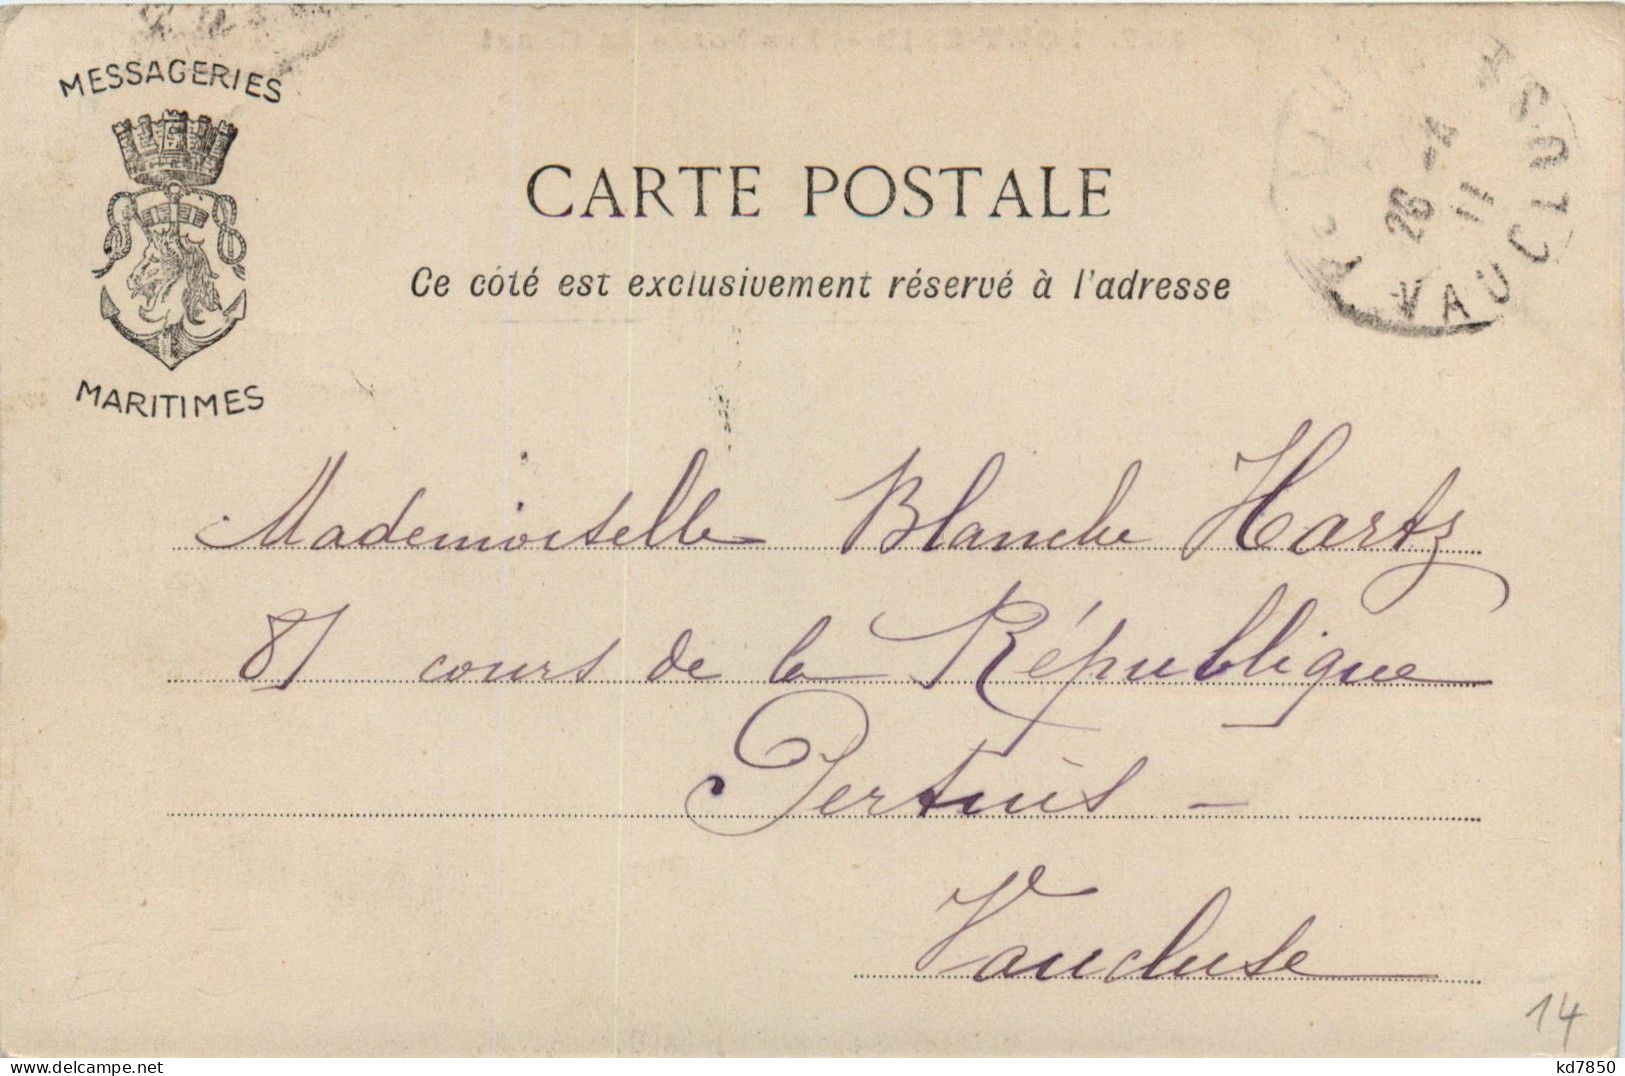 MESSAGERIES
MARITIMES
CARTE POSTALE
Ce côté est exclusivement réservé à l'adresse
28 -4
11
VAUCLUSE
Mademoiselle Blanche Hartz
81 cours de la République
Pertuis -
Vaucluse
14
kd7850